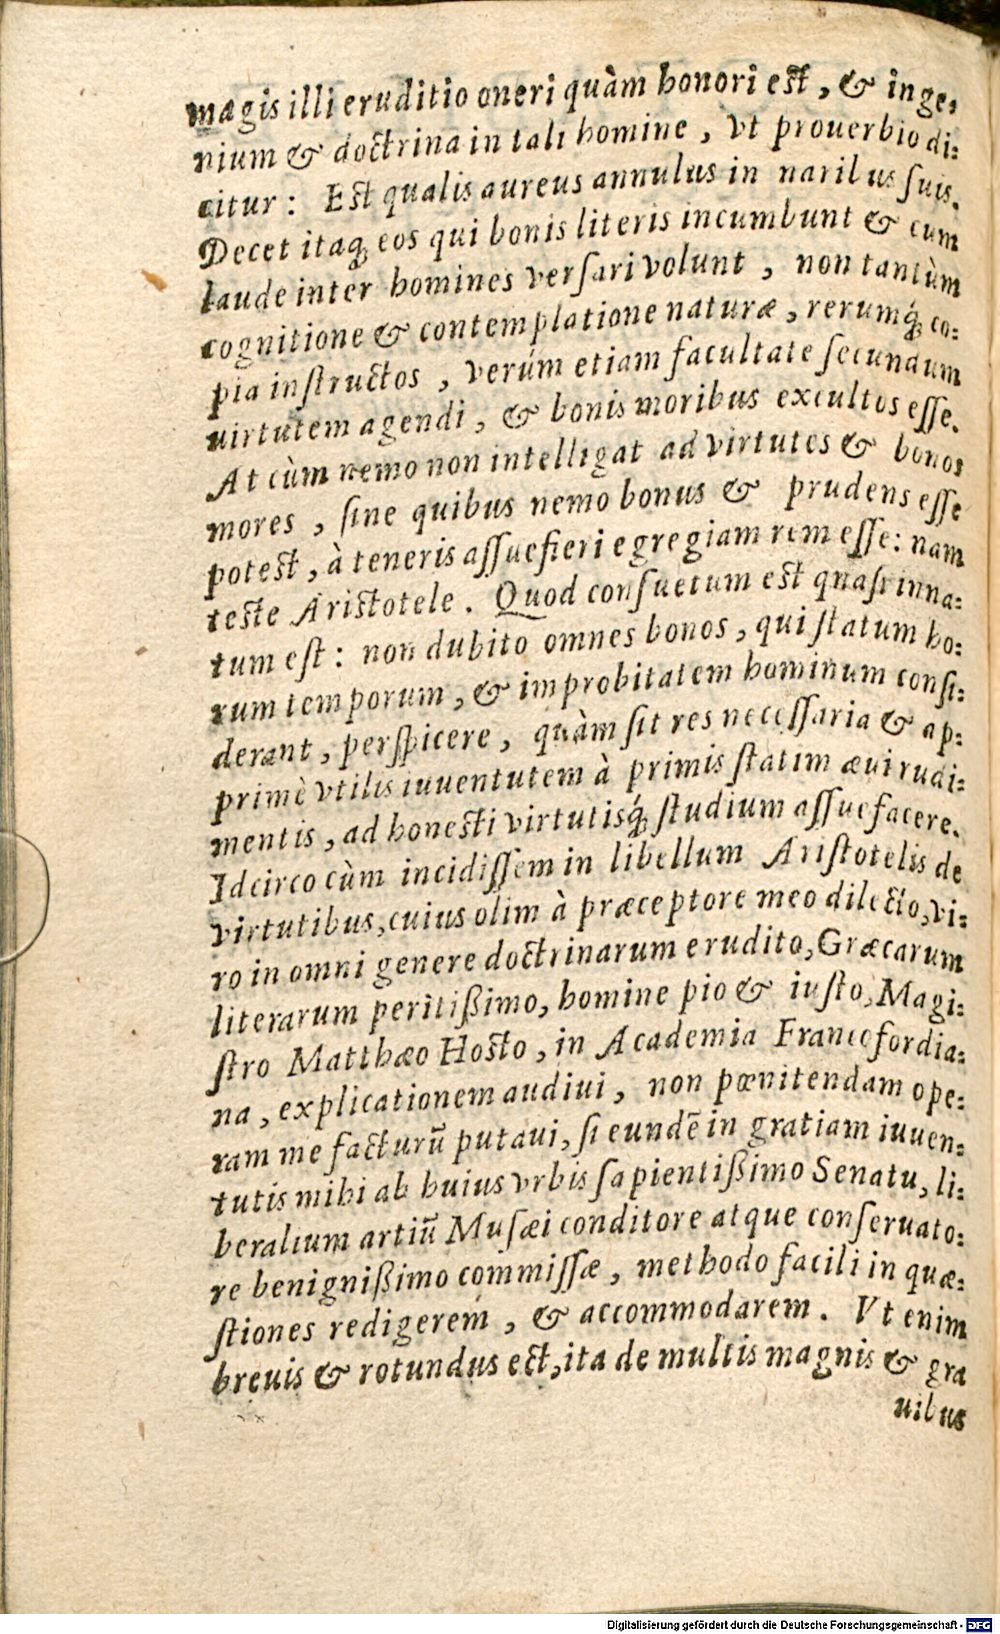 magis illi eruditio oneri quàm honori est, & inge-
nium & doctrina in tali homine, vt prouerbio di-
citur: Est qualis aureus annulus in naribus suis.
Decet itaq; eos qui bonis literis incumbunt & cum
laude inter homines versari volunt, non tantùm
cognitione & contemplatione naturæ, rerumq́; co-
pia instructos, verúm etiam facultate secundum
uirtutem agendi, & bonis moribus excultos esse.
At cùm nemo non intelligat ad virtutes & bonos
mores, sine quibus nemo bonus & prudens esse
potest, à teneris assuefieri egregiam rem esse: nam
teste Aristotele. Quod consuetum est quasi inna-
tum est: non dubito omnes bonos, qui statum ho-
rum temporum, & improbitatem hominum consi-
derant, perspicere, quàm sit res necessaria & ap-
primè vtilis iuuentutem à primis statim æui rudi-
mentis, ad honesti virtutisq́; studium assuefacere.
Idcirco cùm incidissem in libellum Aristotelis de
virtutibus, cuius olim à præceptore meo dilecto, vi-
ro in omni genere doctrinarum erudito, Græcarum
literarum peritißimo, homine pio & iusto, Magi-
stro Matthæo Hosto, in Academia Francfordia-
na, explicationem audiui, non pœnitendam ope-
ram me facturũ putaui, si eundẽ in gratiam iuuen-
tutis mihi ab huius vrbis sapientißimo Senatu, li-
beralium artiũ Musæi conditore atque conseruato-
re benignißimo commissæ, methodo facili in quæ-
stiones redigerem, & accommodarem. Vt enim
breuis & rotundus est, ita de multis magnis & gra
uibus
Digitalisierung gefördert durch die Deutsche Forschungsgemeinschaft - DFG